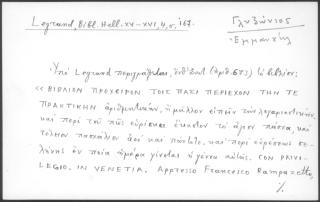 Legrand, Bibl. Hell. XV-XVI, 4, σ. 167.
Γλυζώνιος
Ἐμμανουήλ
Ὑπὸ Legrand περιγράφεται, (ἀριθ. 673) τὸ βιβλίον:
«ΒΙΒΛΙΟΝ ΠΡΟΧΕΙΡΟΝ ΤΟΙΣ ΠΑΣΙ ΠΕΡΙΕΧΟΝ ΤΗΝ ΤΕ
ΠΡΑΚΤΙΚΗΝ ἀριθμητικήν, ἢ μᾶλλον εἰπεῖν τὸν λογαριασμόν,
καὶ περὶ τοῦ πῶς εὑρίσκει ἕκαστον τὸ ἅγιον πάσχα, καὶ
πασχάλιον ἀεὶ καὶ πάντοτε, καὶ περὶ εὑρέσεως σε-
λήνης ἐν ποίᾳ ἡμέρᾳ γίνεται ἡ γέννα αὐτῆς. CON PRIVI-
LEGIO, IN VENETIA, Appresso Francesco Rampazetto,